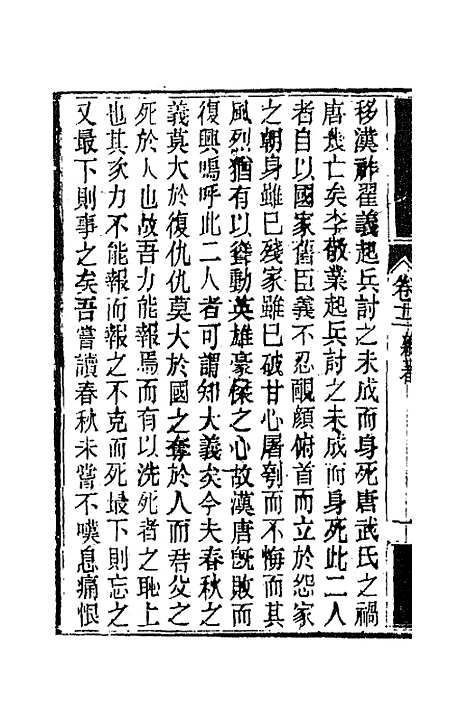 移漢祚翟義起兵討之未成而身死唐武氏之禍
唐幾亡矣李敬業起兵討之未成而身死此二人
者自以國家舊臣義不忍靦顔俯首而立於怨家
之朝身雖已殘家雖已破甘心屠剄而不悔而其
風烈猶有以聳動英雄豪傑之心故漢唐旣敗而
復興嗚呼此二人者可謂知大義矣今夫春秋之
義莫大於復仇仇莫大於國之奪於人而君父之
死於人也故吾力能報焉而有以洗死者之恥上
也其次力不能報而報之不克而死最下則忘之
又最下則事之矣吾嘗讀春秋未嘗不嘆息痛恨
卷 雜著